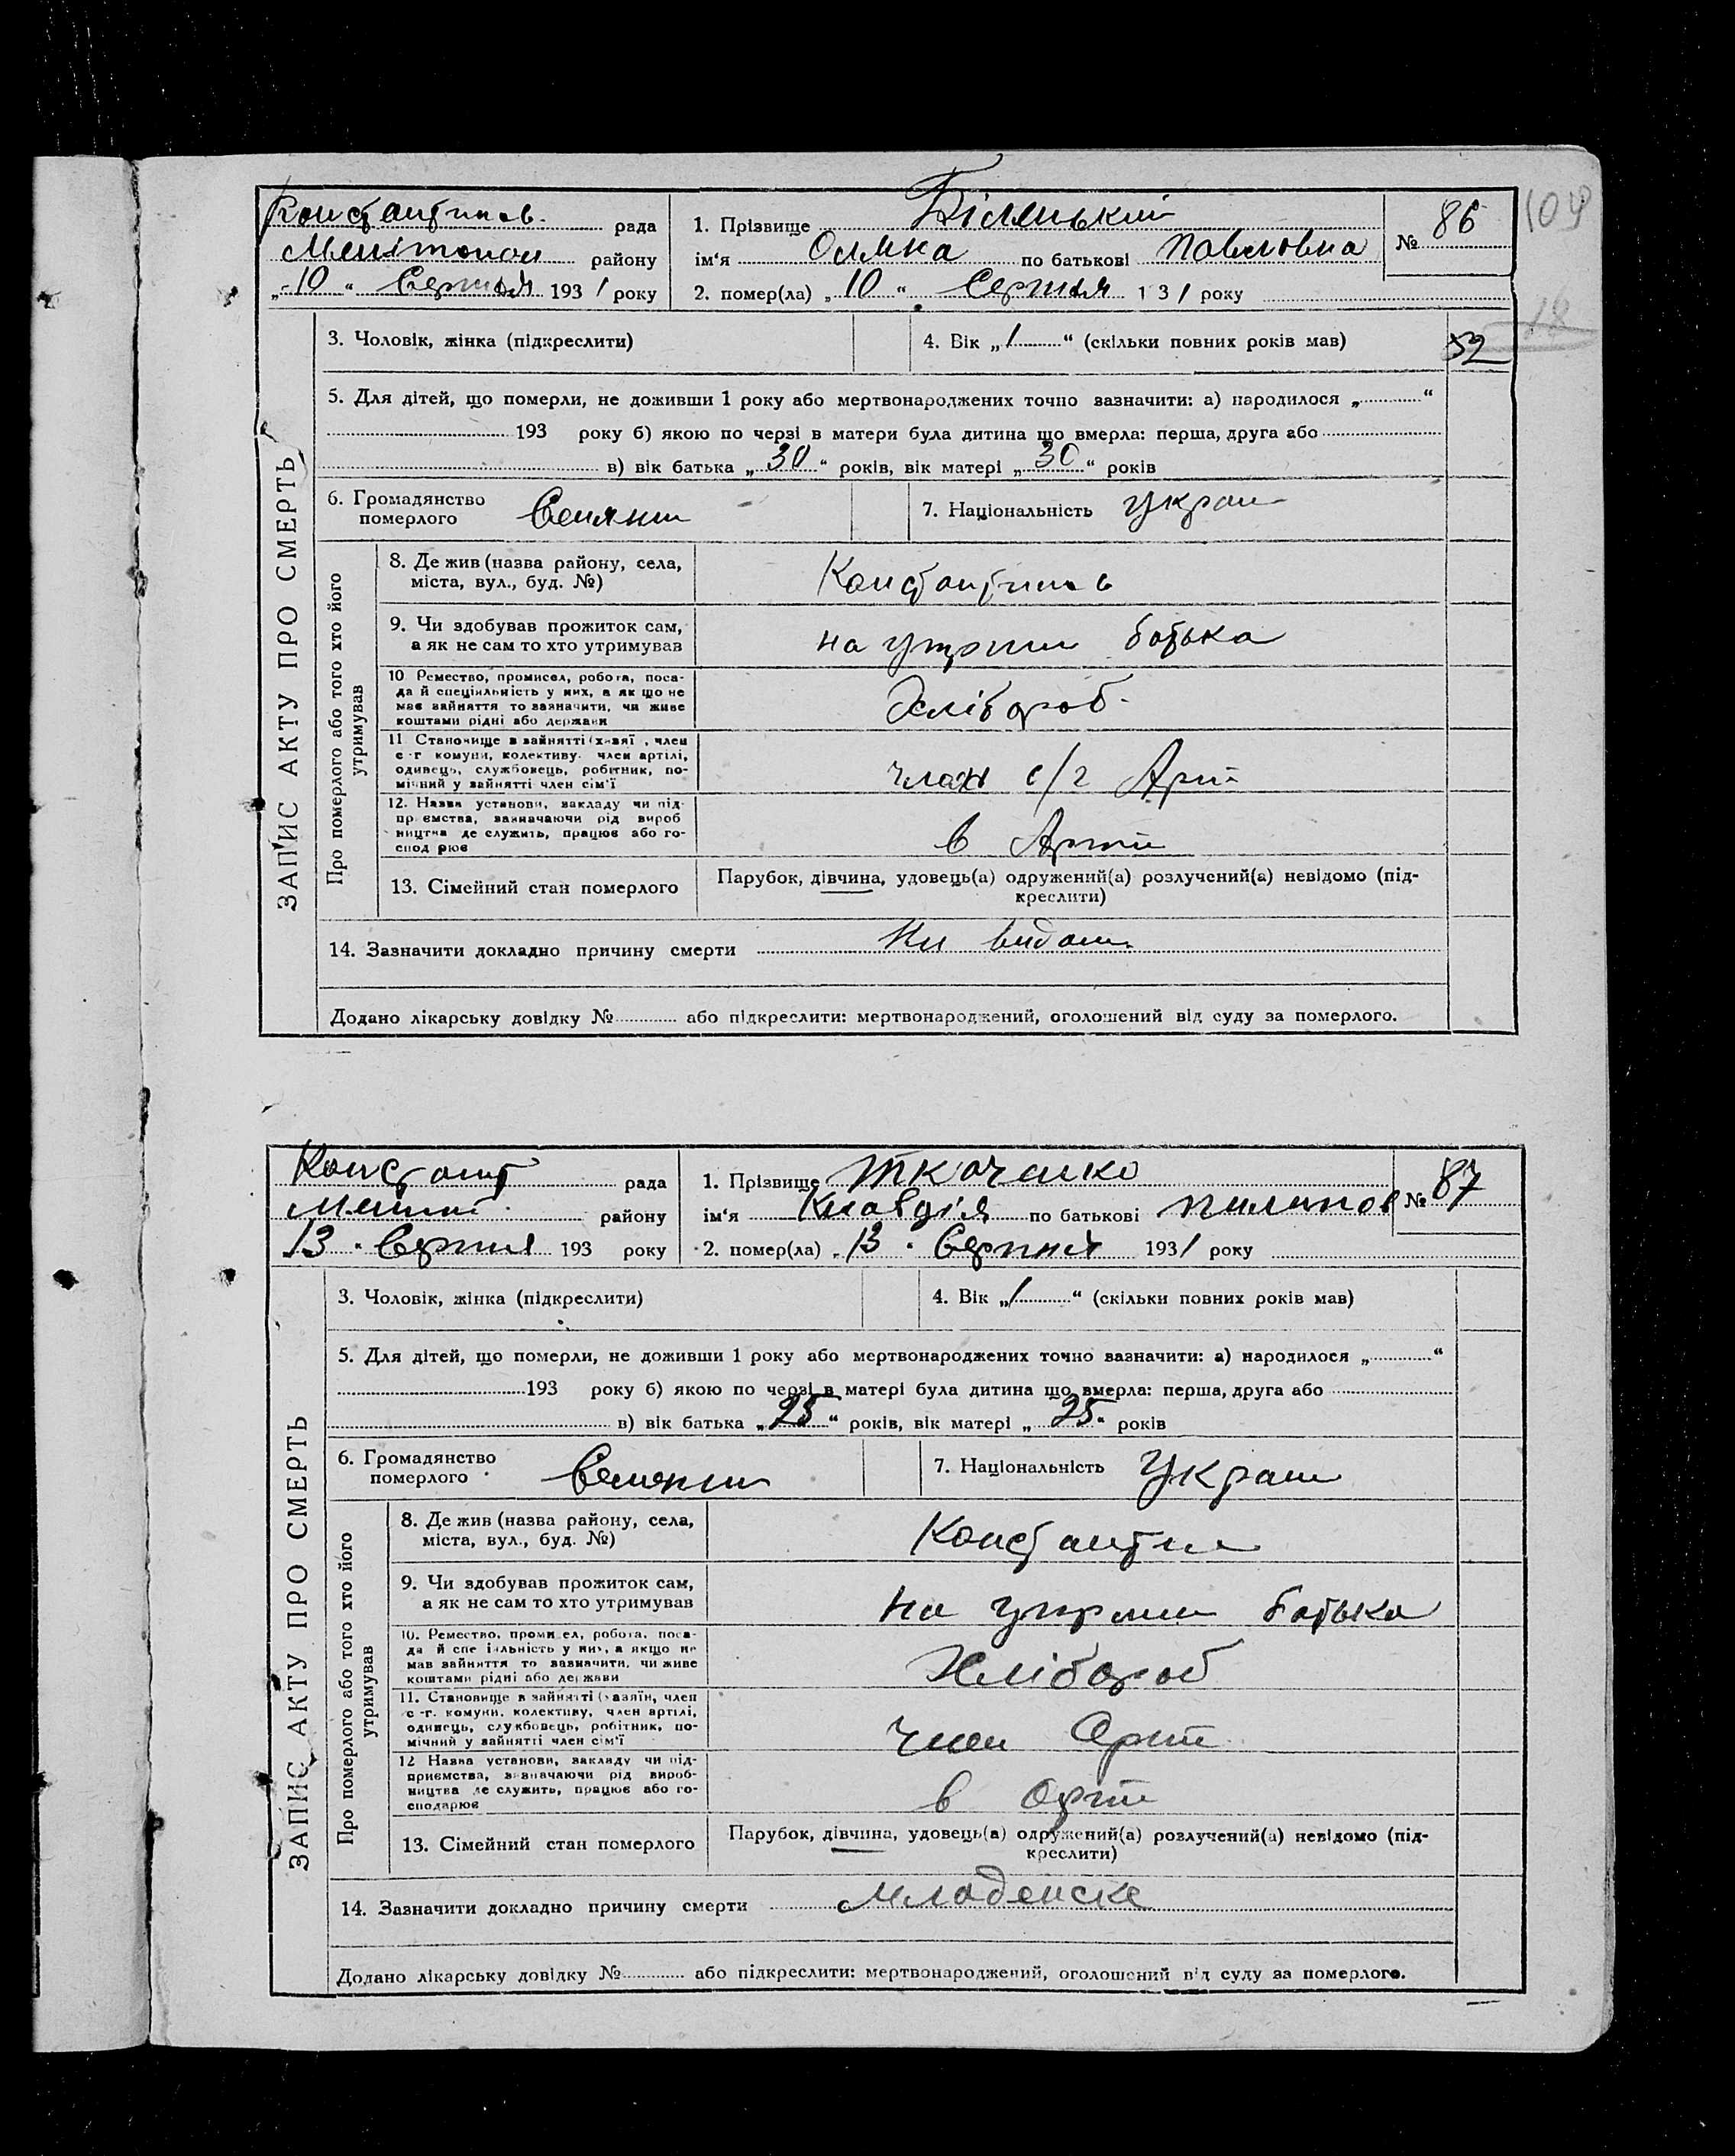 Константинов. рада
1. Прізвище Біленький
№ 86
109
Мелітопол району
ім'я Олянка по батькові Павловна
„10“ Серпня 1931 року
2. помер(ла) „10“ Серпня 1 31 року
18
3. Чоловік, жінка (підкреслити)
4. Вік „1“ (скільки повних років мав)
52
5. Для дітей, що померли, не доживши 1 року або мертвонароджених точно зазначити: а) народилося „ “
193 року б) якою по черзі в матери була дитина що вмерла: перша, друга або
в) вік батька „30“ років, вік матері „30“ років
ЗАПИС АКТУ ПРО СМЕРТЬ
6. Громадянство
померлого Селянин
7. Національність Украи
Про померлого або того хто його
утримував
8. Де жив (назва району, села,
міста, вул., буд. №)
Константинов
9. Чи здобував прожиток сам,
а як не сам то хто утримував
на утрим батька
10 Ремество, промисел, робота, поса-
да й спеціяльність у них, а як що не
має зайняття то зазначити, чи живе
коштами рідні або держави
Хлібороб.
11 Становище в зайнятті (х зяї , член
с -г комуни, колективу. член артілі,
одинець, службовець, робітник, по-
мічний у зайнятті член сім'ї
член с/г Арт
12. Назва установи, закладу чи під-
пр ємства, зазначаючи рід вироб
ництва де служить, працює або го-
спод рює
в Арти
13. Сімейний стан померлого
Парубок, дівчина, удовець(а) одружений(а) розлучений(а) невідомо (під-
креслити)
14. Зазначити докладно причину смерти
Додано лікарську довідку № або підкреслити: мертвонароджений, оголошений від суду за померлого.
Констант рада
1. Прізвище Ткаченко
№ 87
Меліт району
ім'я Клавдія по батькові Пилипов
13 „ Серпня 193 року
2. помер(ла) „13 „ Серпня 1931 року
3. Чоловік, жінка (підкреслити)
4. Вік „1“ (скільки повних років мав)
5. Для дітей, що померли, не доживши 1 року або мертвонароджених точно зазначити: а) народилося „ “
193 року б) якою по черзі в матері була дитина що вмерла: перша, друга або
в) вік батька „25“ років, вік матері „25“ років
ЗАПИС АКТУ ПРО СМЕРТЬ
6. Громадянство
померлого Селянин
7. Національність Украи
Про померлого або того хто його
утримував
8. Де жив (назва району, села,
міста, вул., буд. №)
Константин
9. Чи здобував прожиток сам,
а як не сам то хто утримував
на утрим батька
10. Ремество, проми ел, робота, поса-
да й спе іяльність у них, а якщо не
мав зайняття то зазначити, чи живе
коштами рідні або держави
Хлібороб
11. Становище в зайнятті (хазяїн, член
с -г. комуни, колективу, член артілі,
одинець, службовець, робітник, по-
мічний у зайнятті член сім'ї
член Арт
12 Назва установи, закладу чи під-
приємства, зазначаючи рід вироб-
ництва де служить, працює або го-
сподарює
в Арт
13. Сімейний стан померлого
Парубок, дівчина, удовець(а) одружений(а) розлучений(а) невідомо (під-
креслити)
14. Зазначити докладно причину смерти Младенске
Додано лікарську довідку № або підкреслити: мертвонароджений, оголошений від суду за померлого.